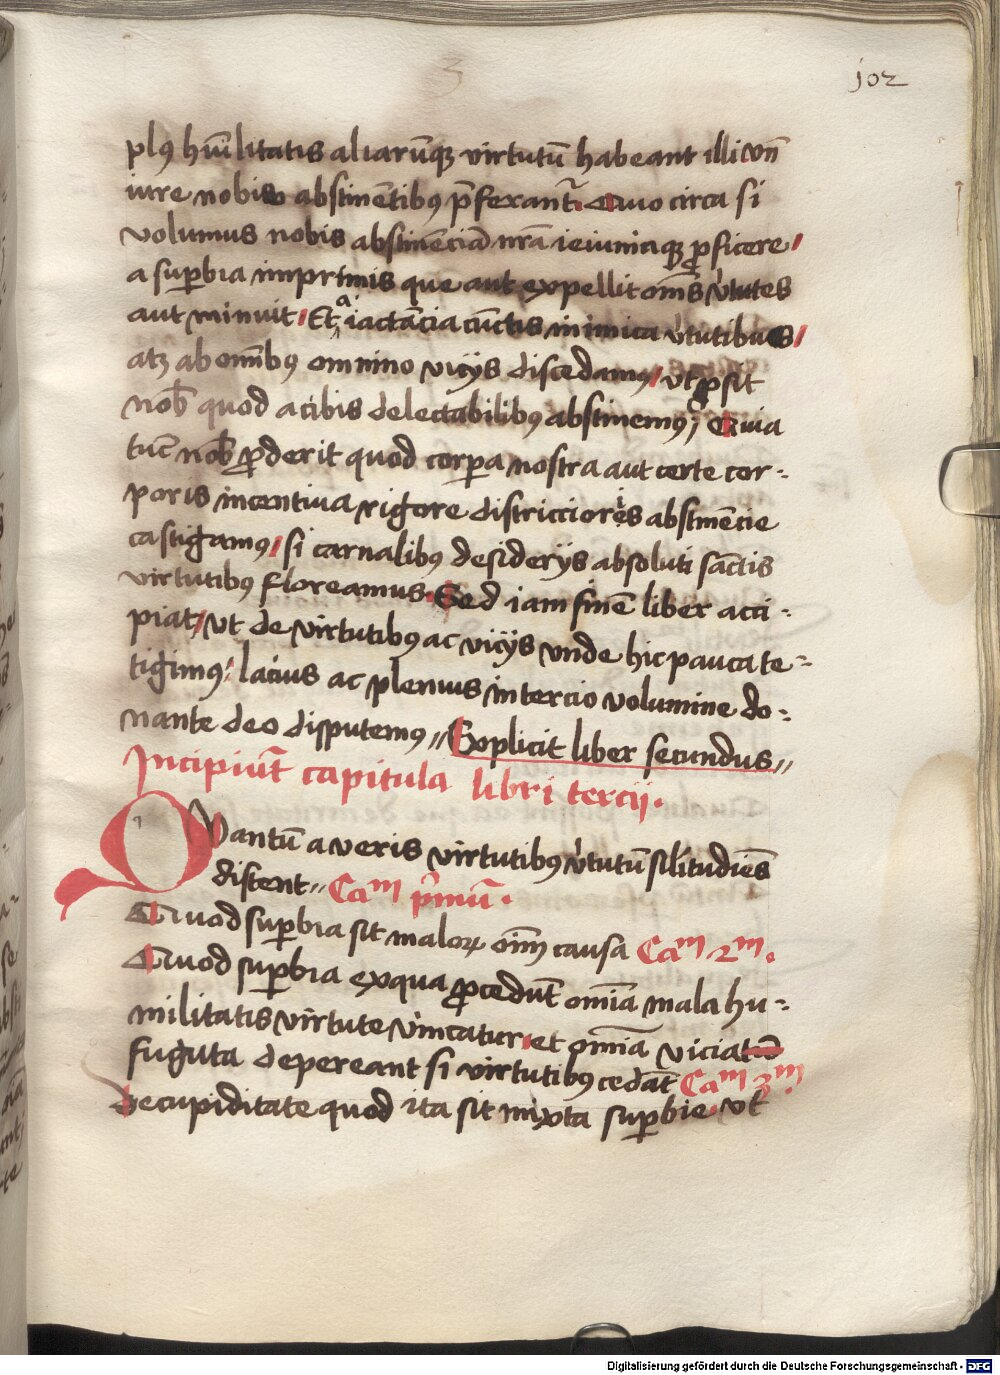 3
102
plꝰ hũilitatis aliarũqꝫ virtutũ habeant illi vñ
iure nobis abstinẽtibꝰ p̃ferant᷑. Quo circa si
volumus nobis abstinẽciã nr̃a ieiuniaqꝫ ꝓficere /
a suꝑbia imprimis que aut expellit om̃s v̓tutes
aut minuit / Et a iactãcia cũctis inimica v̓tutibus /
atꝫ ab om̃ibꝰ omnino vicijs discedamꝰ / vt ꝓsit
nob̃ quod a cibis delectabilibꝰ abstinemꝰ / Quia
tũc nob̃ ꝓderit quod corꝑa nostra aut certe cor-
poris incentiua rigore districcioris abstinẽcie
castigamꝰ / si carnalibꝰ desiderijs absoluti sãctis
virtutibꝰ floreamus. Sed iam finẽ liber acci-
piat / vt de virtutibꝰ ac vicijs vnde hic pauca te-
tigimꝰ / lacius ac plenius in tercio volumine do-
nante deo disputemꝰ // Explicit liber secundus //
Incipiũt capitula libri tercij.
Quantũ a veris virtutibꝰ v̓tutũ sil̃itudĩes
distent // Caᵐ p̓mũ.
Quod suꝑbia sit maloꝝ oĩm causa Caᵐ 2ᵐ.
Quod suꝑbia ex qua ꝓcedũt om̃ia mala hu-
militatis virtute vincatur / et om̃ia vicia
fugata depereant si virtutibꝰ cedãt Caᵐ 3ᵐ
De cupiditate quod ita sit mixta suꝑbie vt
Digitalisierung gefördert durch die Deutsche Forschungsgemeinschaft - DFG